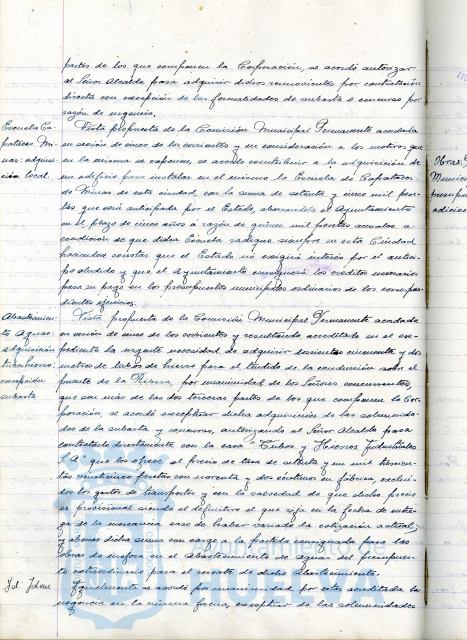 partes de los que componen la Corporación, se acordó autorizar
al Señor Alcalde para adquirir dichos semovientes por contratación
directa con excepción de las formalidades de subasta o concurso por
razón de urgencia.
Escuela Ca-
pataces Mi-
nas: adquisi-
ción local.
Vista propuesta de la Comisión Municipal Permanente acordada
en sesión de cinco de los corrientes y en consideración a los motivos que
en la misma se exponen, se acordó contribuir a la adquisición de
un edificio para instalar en el mismo la Escuela de Capataces
de Minas de esta ciudad, con la suma de setenta y cinco mil pese-
tas que será anticipada por el Estado, abonándolas el Ayuntamiento
en el plazo de cinco años a razón de quince mil pesetas anuales a
condición de que dicha Escuela radique siempre en esta Ciudad
haciendo constar que el Estado no exigirá interés por el antici-
po aludido y que el Ayuntamiento consignará los créditos necesarios
para su pago en los presupuestos municipales ordinarios de los correspon-
dientes ejercicios.
Abastecimien-
to Aguas:
adquisición
tubos hierro:
excepción
subasta
Vista propuesta de la Comisión Municipal Permanente acordada
en sesión de cinco de los corrientes y resultando acreditado en el expe-
diente la urgente necesidad de adquirir doscientos cincuenta y dos
metros de tubos de hierro para el tendido de la conducción sobre el
puente de la Ribera, por unanimidad de los Señores concurrentes,
que son más de las dos terceras partes de los que componen la Cor-
poración, se acordó exceptuar dicha adquisición de las solemnida-
des de la subasta y concurso, autorizando al Señor Alcalde para
contratarlo directamente con la casa "Tubos y Hierros Industriales
S.A." que los ofrece al precio de
veinticinco pesetas con noventa y dos céntimos en fábrica, exclui-
dos los gastos de transportes y con la salvedad de que dicho precio
es provisional siendo el definitivo el que rija en la fecha de entre-
ga de la mercancía caso de haber variado la cotización actual,
y abonar dicha suma con cargo a la partida consignada para las
obras de mejora en el Abastecimiento de aguas del presupues-
to extraordinario para el rescate de dicho abastecimiento.
Id. Idem
Igualmente se acordó por unanimidad por estar acreditada la
urgencia en la misma forma, exceptuar de las solemnidades
Munici
presup